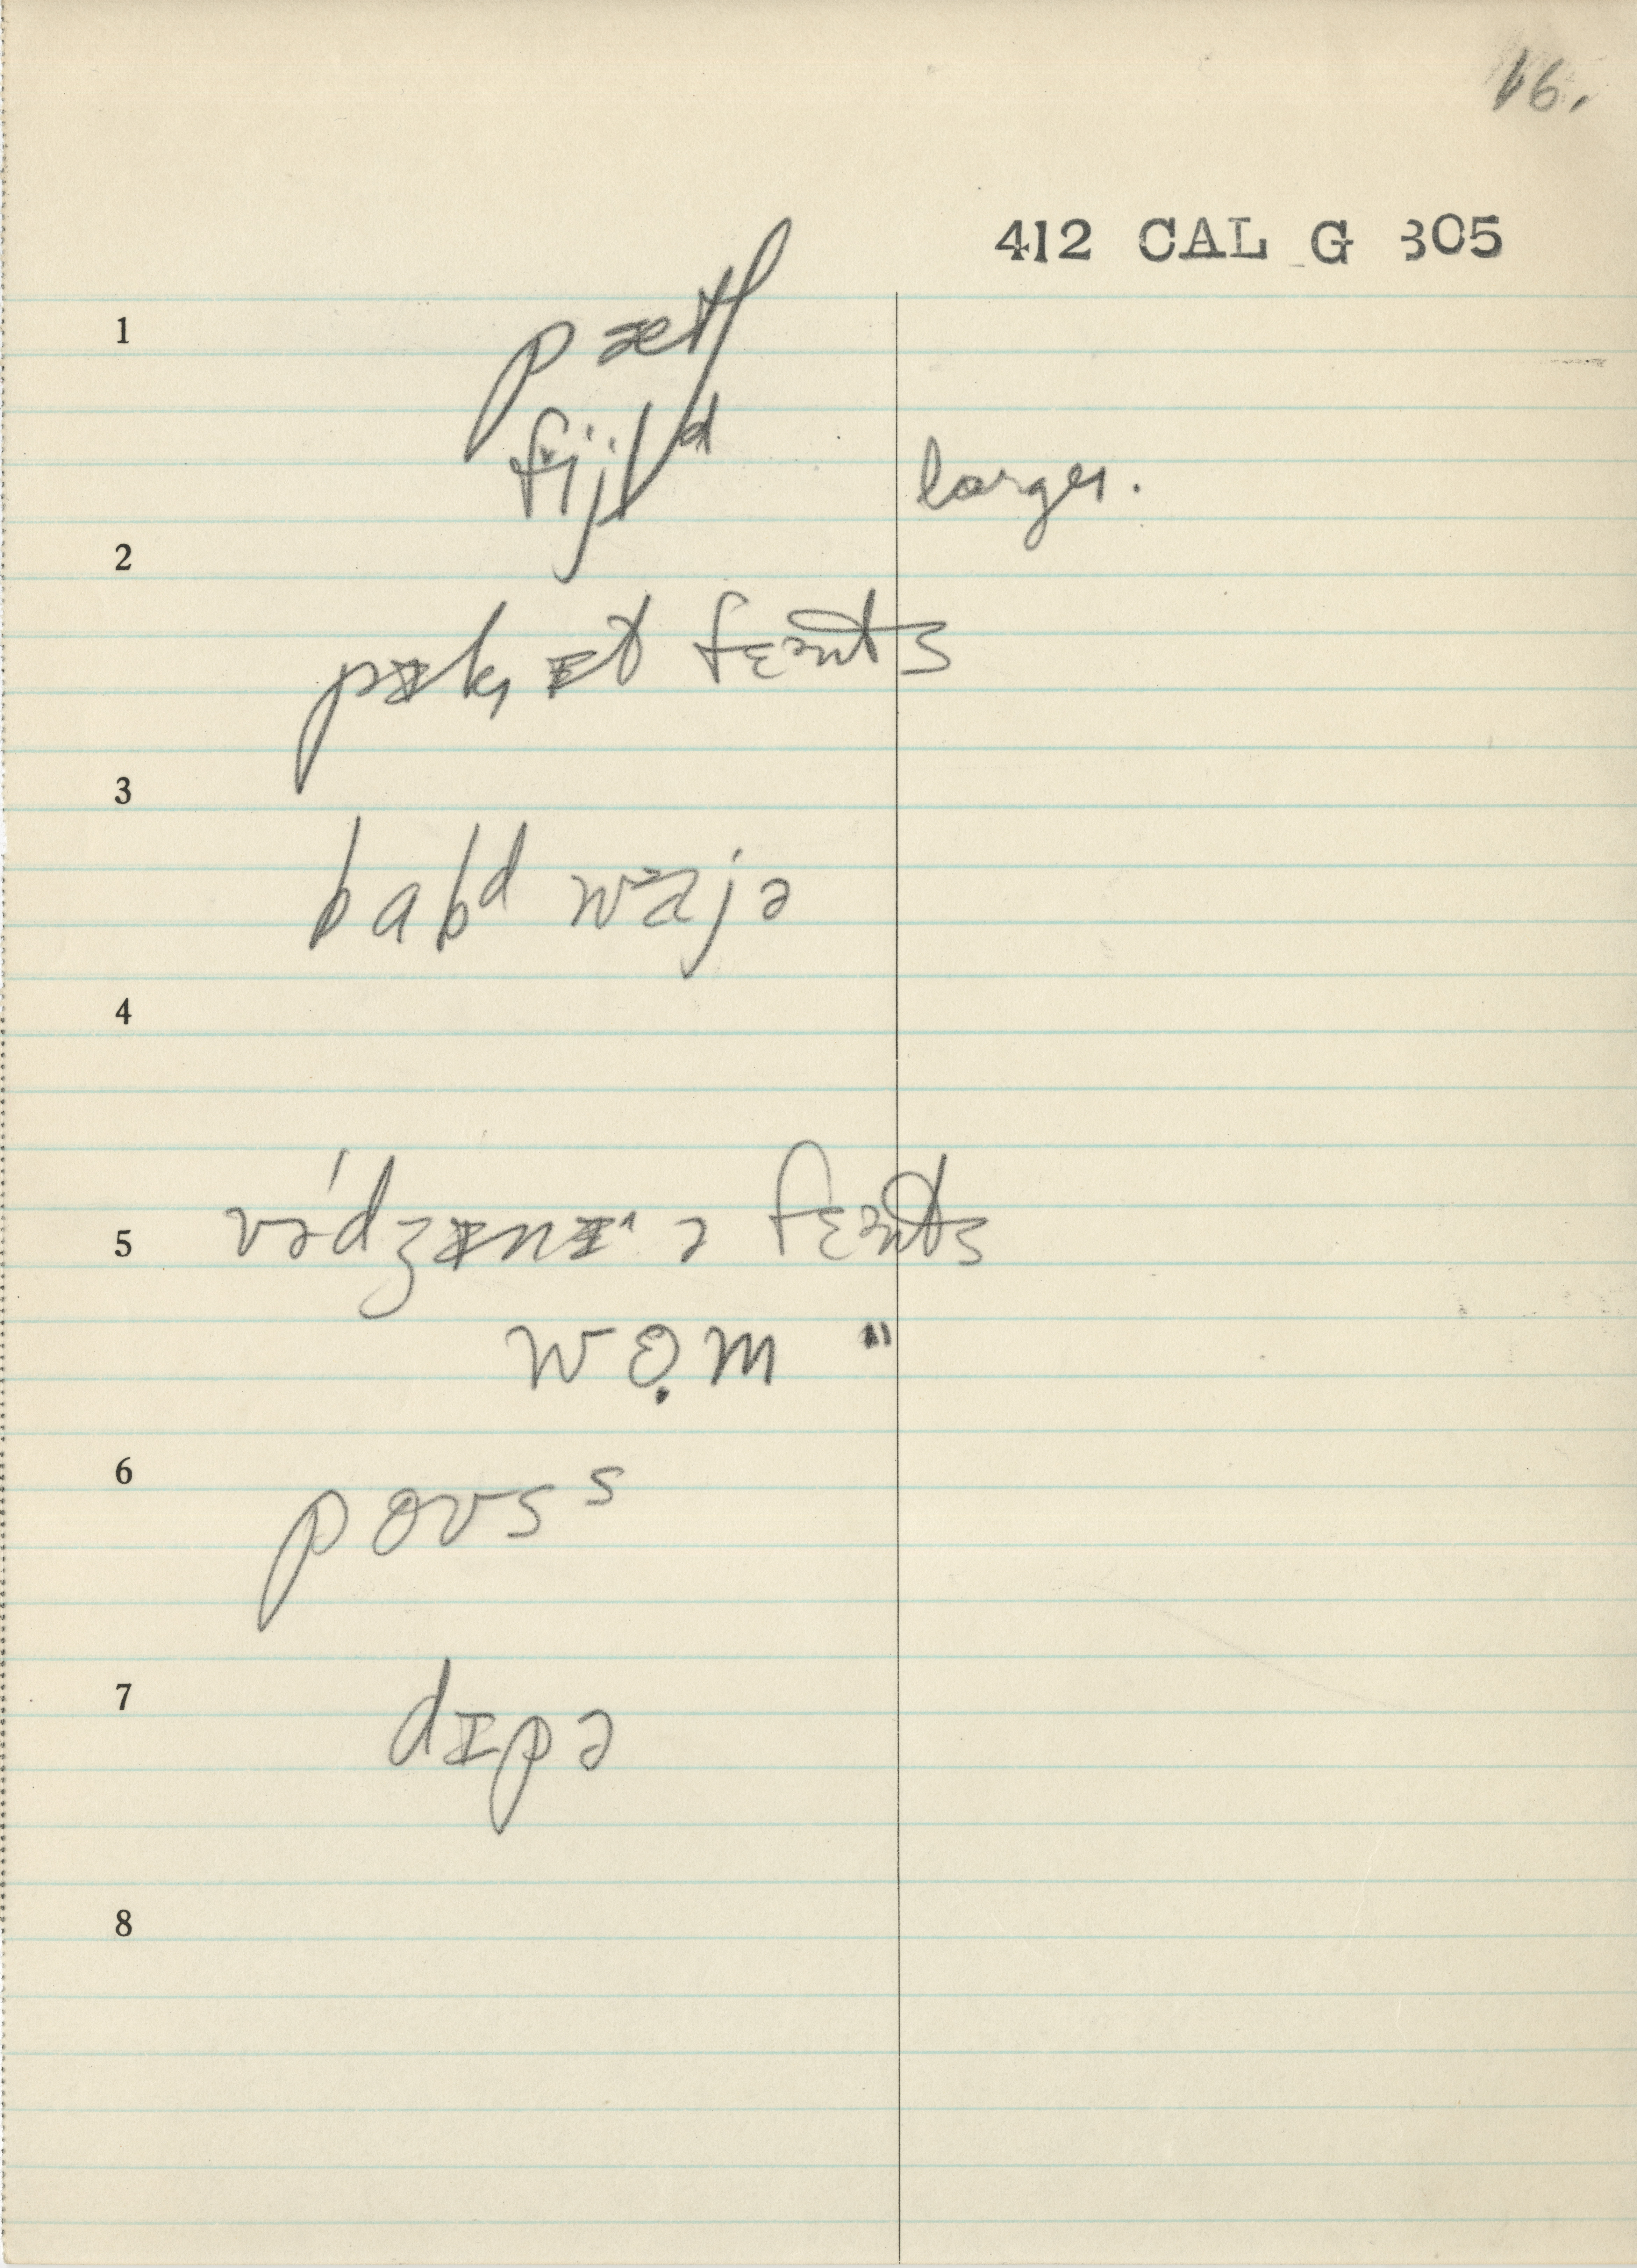 16.
412 CAL G 305
1
pæ̵tʃ
fijld larger.
2
pɪkɪt fɛənts
3
babd waɪjə
4
5
vədʒɪnɪˈə fɛənts
wɵ̣m "
6
povs s
7
dɪpə
8